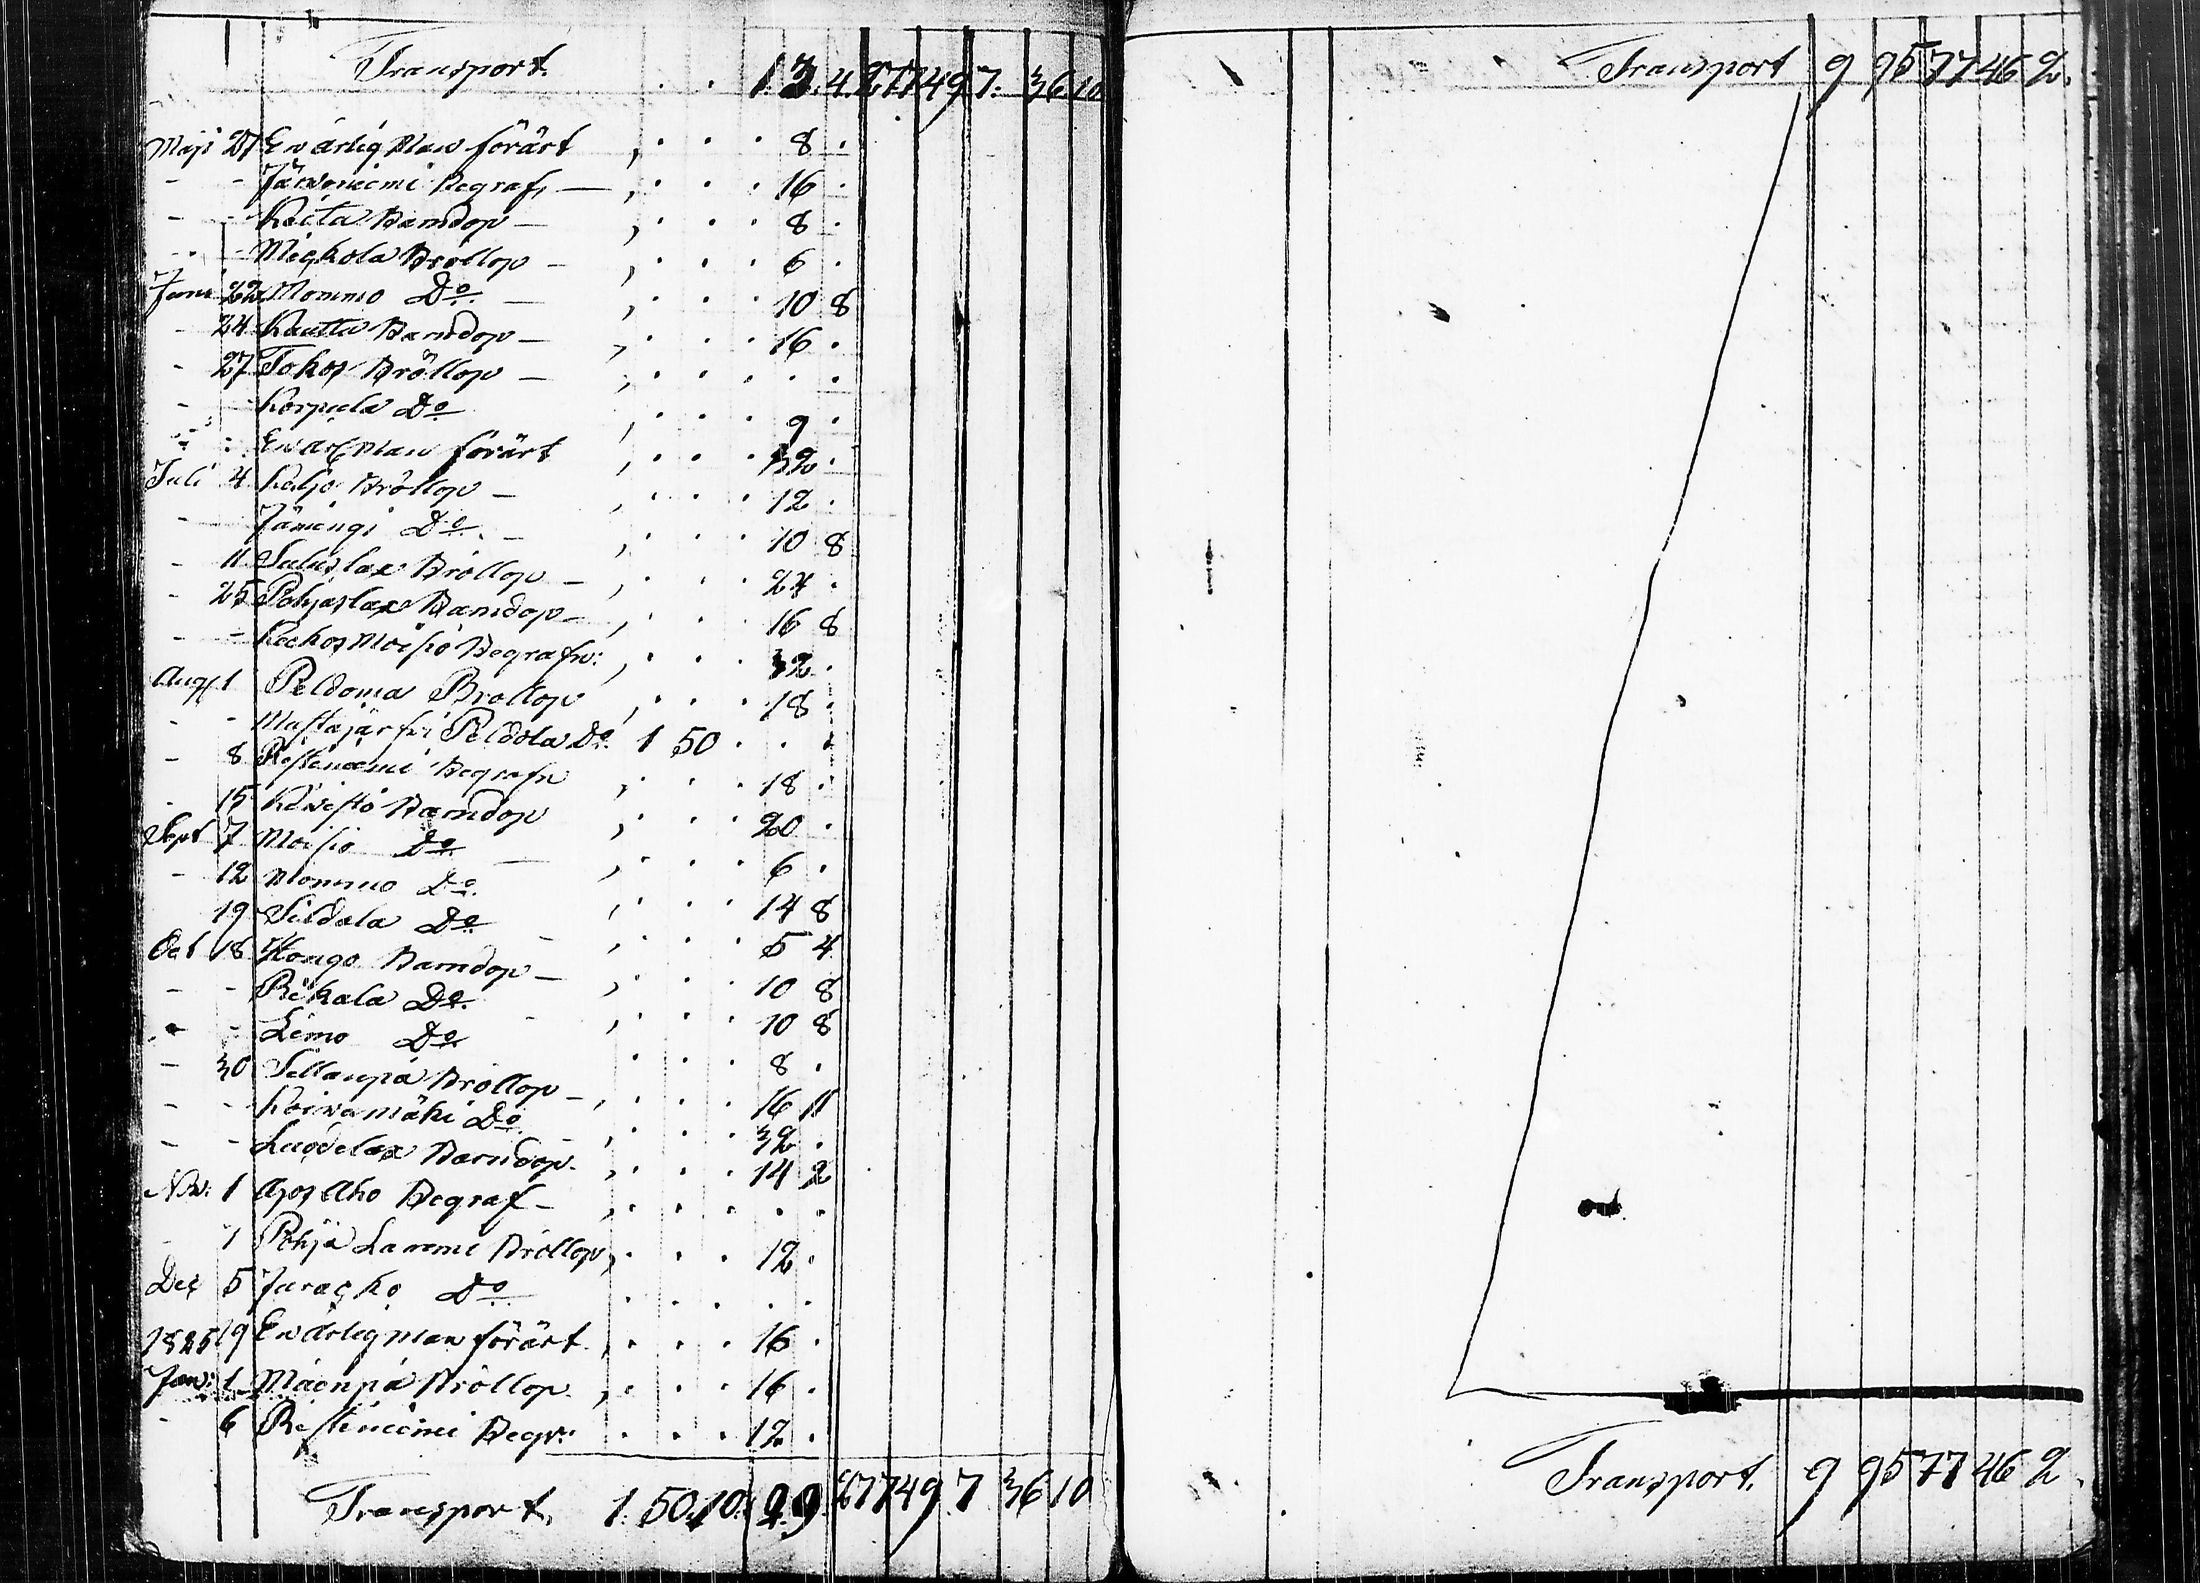 Transport. . . 13. 4. 277 49 7. 36 10
Maji 27 En ärlig Man förärt , . . . 8 .
- - Järveniemi Begraf, — , . . . 16 .
- - Keita Barndop — , . . . 8 .
- - Bröllop — , . . . 6 .
Juni 22 Mommo Do — , . . . 10 8
- 24 Kautta Barndop — , . . . 16 .
- 27 Tokoj Bröllop — , . . . . .
- - Korpula Do , . . . 9 .
- - En ärl Man förärt , . . . 32 .
Juli 4 Keljo Bröllop — , . . . 12 .
- Jämingi Do. — , . . . 10 8
- 11 Saluslax Bröllop — , . . . 24 .
- 25 Pohjaslax Barndop — , . . . 16 8
- - Moisio Begrafn: , . . . 32 .
Aug 1 Peldoma Bröllop , . . . 18 .
- - Mustajärfvi Peldola Do. 1 50 . . .
- 8 Ristiniemi Begrafn , . . . 18 .
- 15 Kivistö Barndop , . . . 20 .
Sept 7 Moisio Do — , . . . 6 .
- 12 Mommo Do. , . . . 14 8
19 Sildala Do — , . . . 5 4
Oct 18 Hongo Barndop — , . . . 10 8
- - Rekala Do. - , . . . 10 8
- - Limo Do . . . 8 .
- 30 Sillanpä Bröllop — , . . . 16 11
- - Koivamäki Do — , . . . 32 .
- - Luodelax Barndop. , . . . 14 2
Nov: 1 Aho Begraf — , . . . . .
- 1 Pohja Lammi Bröllop , . . . 12 .
Dec 5 Do . . . . .
1825 19 En ärlig man förärt , . . . 16 .
Jan: 1 Mäenpä Bröllop. , . . . 16 .
- 6 Ristiniemi Begr: . . . 12 .
Transport. 1. 50. 10. 29. 277 49 7 36 10
Transport 9 95 77 46 2.
Transport. 9 95 77 46 2.